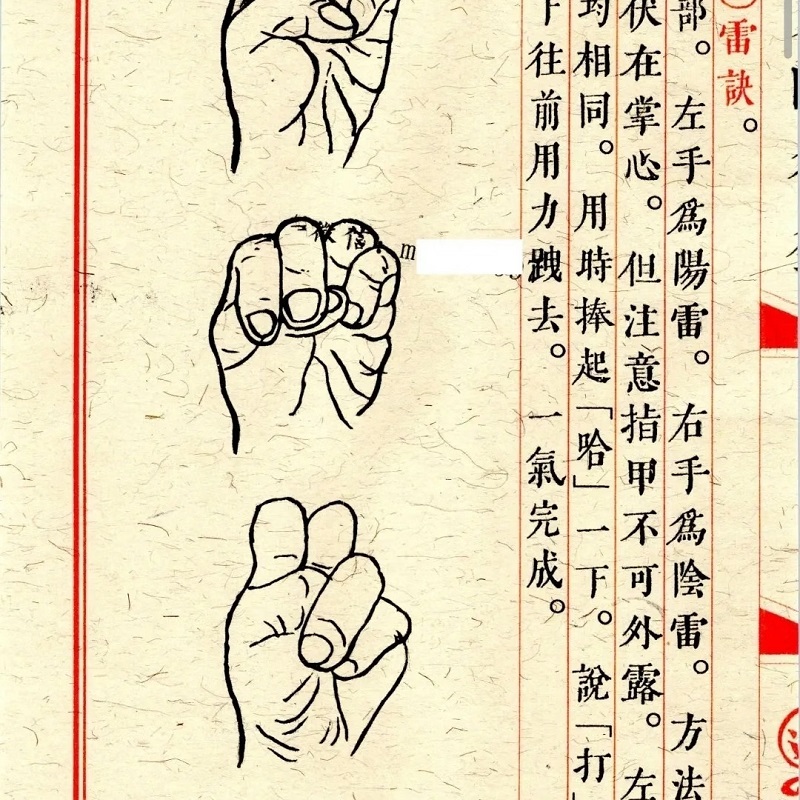 雷訣。
部。左手爲陽雷。右手爲陰雷。方法
伏在掌心。但注意指甲不可外露。左
均相同。用時捧起「哈」一下。說「打」
下往前用力跩去。一氣完成。
微信
m